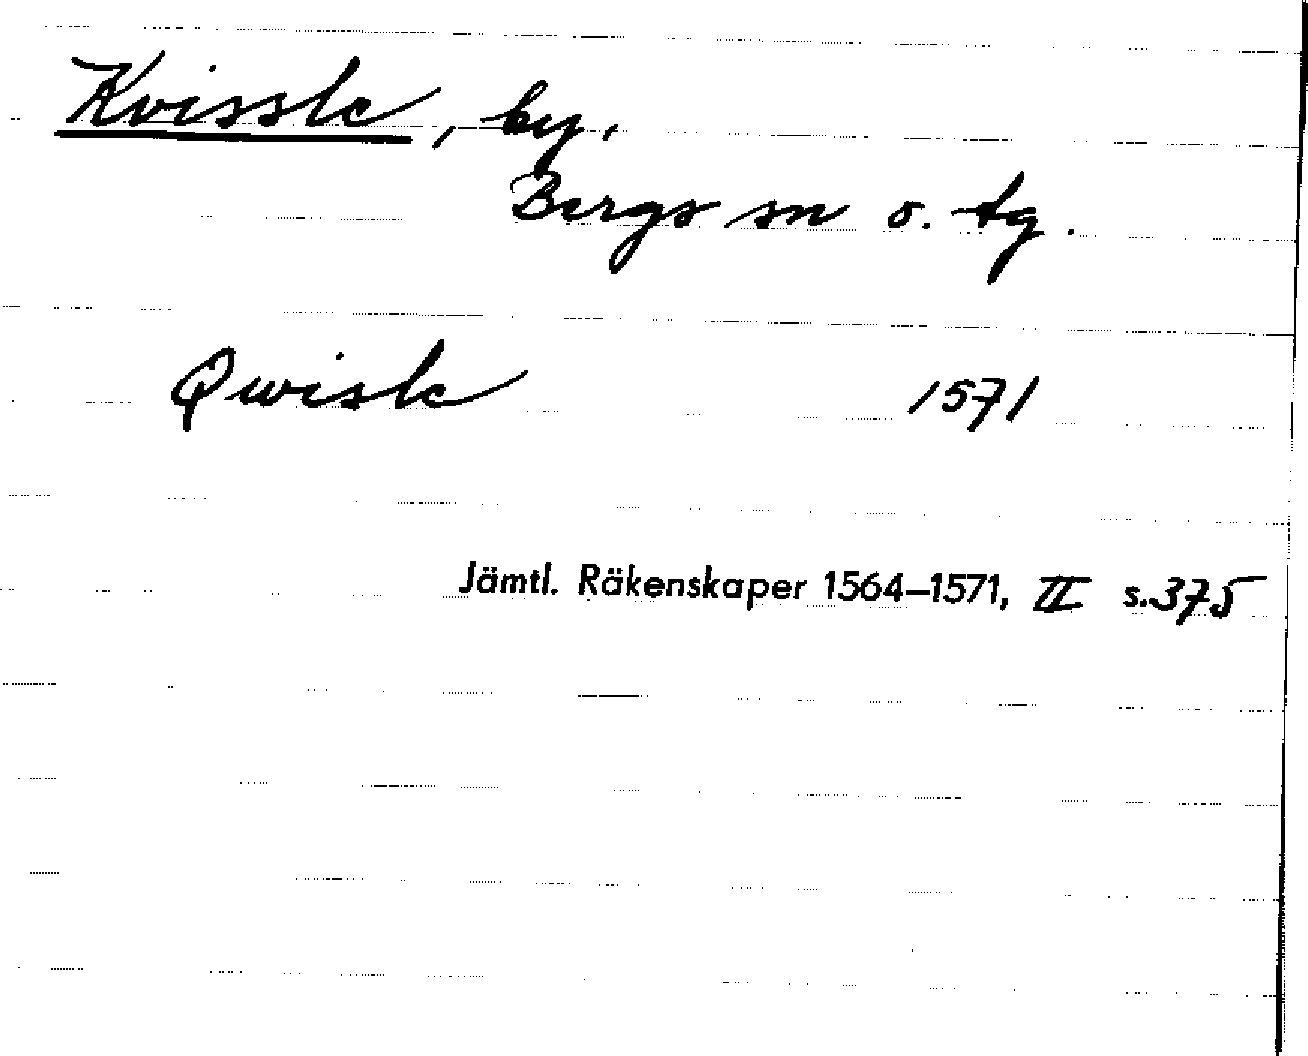 Kvissle, by.
Bergs sn o. tg.
Qwisle 1571
Jämtl. Räkenskaper 1564–1571, II s. 375